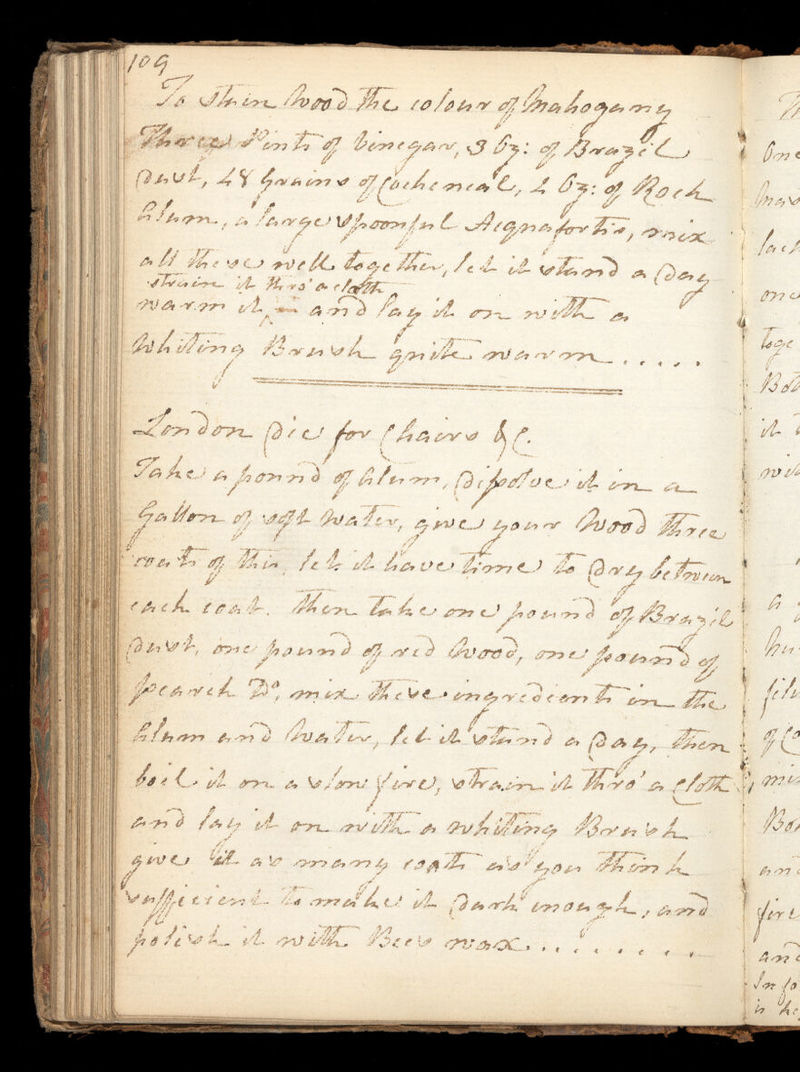 109
To Stain Wood the colour of Mahogany
Three Pints of Vinegar, 3 Oz: of Brazil
Dust, 48 Grains of Cocheneal, 2 Oz: of Roch
Alum, a large spoonful Acquafortis, mix
all these well together, let it stand a Day
strain it thro' a cloth
warm it ^ and lay it on with a
Whiting Brush quite warm.....
London Die for Chairs &C.
Take a pound of Alum, Dissolve it in a
Gallon of soft Water, give your Wood three
coats of this, let it have time to Dry between
each coat. then take one pound of Brazil
Dust, one pound of red Wood, one pound of
peach Do. mix these ingredients in the
Alum and Water, let it stand a Day, then
boil it on a slow fire, strain it thro' a Cloth
and lay it on with a whiting Brush
give it as many coats as you think
sufficient to make it Dark enough, and
polish it with Bees wax.........
One
lack
one
toge
it
and
fire
and